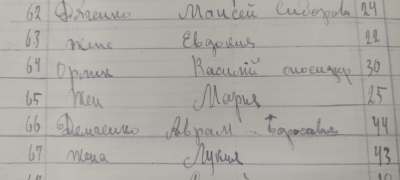 62 Дяченко Моисей Сидорова 24
63 жена Евдокия 22
64 Орлик Василий 30
65 жен Мария 25
66 Демченко Аврам 44
67 жена Лукия 43